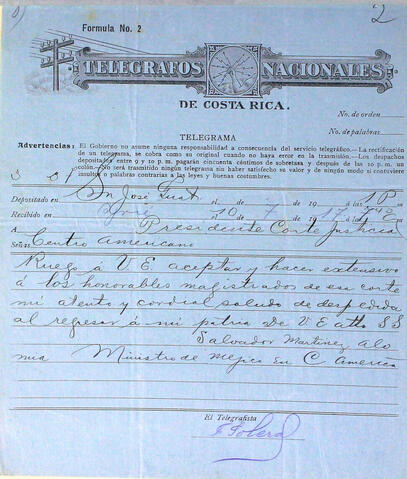 2
Formula No. 2
TELEGRAFOS NACIONALES
DE COSTA RICA.
No. de orden
No. de palabras
TELEGRAMA
Advertencias: El Gobierno no asume ninguna responsabilidad a consecuencia del servicio telegráfico.—La rectificación
de un telegrama, se cobra como su original cuando no haya error en la trasmisión.—Los despachos
depositados entre 9 y 10 p. m. pagarán cincuenta céntimos de sobretasa y después de las 10 p. m. un
colón.—No será trasmitido ningún telegrama sin haber satisfecho su valor y de ningún modo si contuviere
insultos o palabras contrarias a las leyes y buenas costumbres.
Depositado en San José el de de 19 a las 1 P
Recibido en el 10 7 19 17 a las
A Presidente Corte Justicia
Señas Centro Americano
Ruego á V. E. aceptar y hacer extensivo
á los honorables magistrados de esa corte
mi atento y cordial saludo de despedida
al regresar á mi patria De V. E atto SS
Salvador Martinez Alo
mia Ministro de Mejico en C America
El Telegrafista